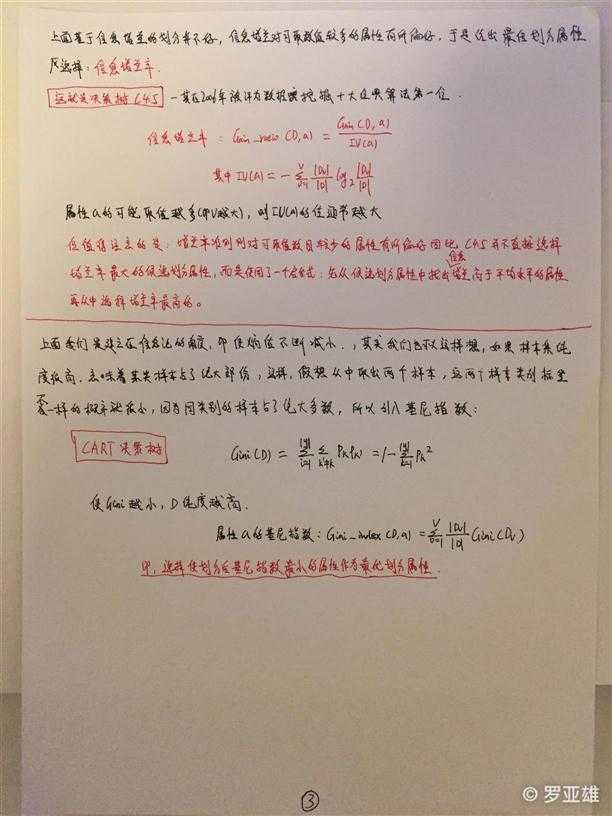 上面基于信息增益的划分并不好，信息增益对可取数值较多的属性有所偏好，于是优出最佳划分属性
及选择：信息增益率.
这就是决策树C4.5 —其在2006年被评为数据挖掘十大经典算法第一位.
信息增益率：Gain_ratio(D,a) = Gain(D,a) / IV(a)
其中 IV(a) = -∑_{v=1}^{V} |Dv|/|D| log₂ |Dv|/|D|
属性a的可能取值越多(即V越大)，则IV(a)的值通常越大
但值得注意的是：增益率准则则对可取值数目较少的属性有所偏好 因此，C4.5并不直接选择
增益率最大的候选划分属性，而是使用了一个启发式：先从候选划分属性中找出信息增益高于平均水平的属性
再从中选择增益率最高的。
上面我们是建立在信息论的角度，即使熵值不断减小.，其实我们也可以这样想，如果样本集纯
度很高.意味着某类样本占了绝大部份，这样，假想从中取出两个样本，这两个样本类别标签
不一样的概率就很小，因为同类别的样本占了绝大多数，所以引入基尼指数：
CART决策树
Gini(D) = ∑_{i=1}^{|y|} ∑_{k'≠k} Pk Pk' = 1-∑_{k=1}^{|y|} Pk²
使Gini越小，D纯度越高.
属性a的基尼指数：Gini_index(D,a) = ∑_{v=1}^{V} |Dv|/|D| Gini(Dv)
即，选择使划分后基尼指数最小的属性作为最优划分属性.
③
© 罗亚雄